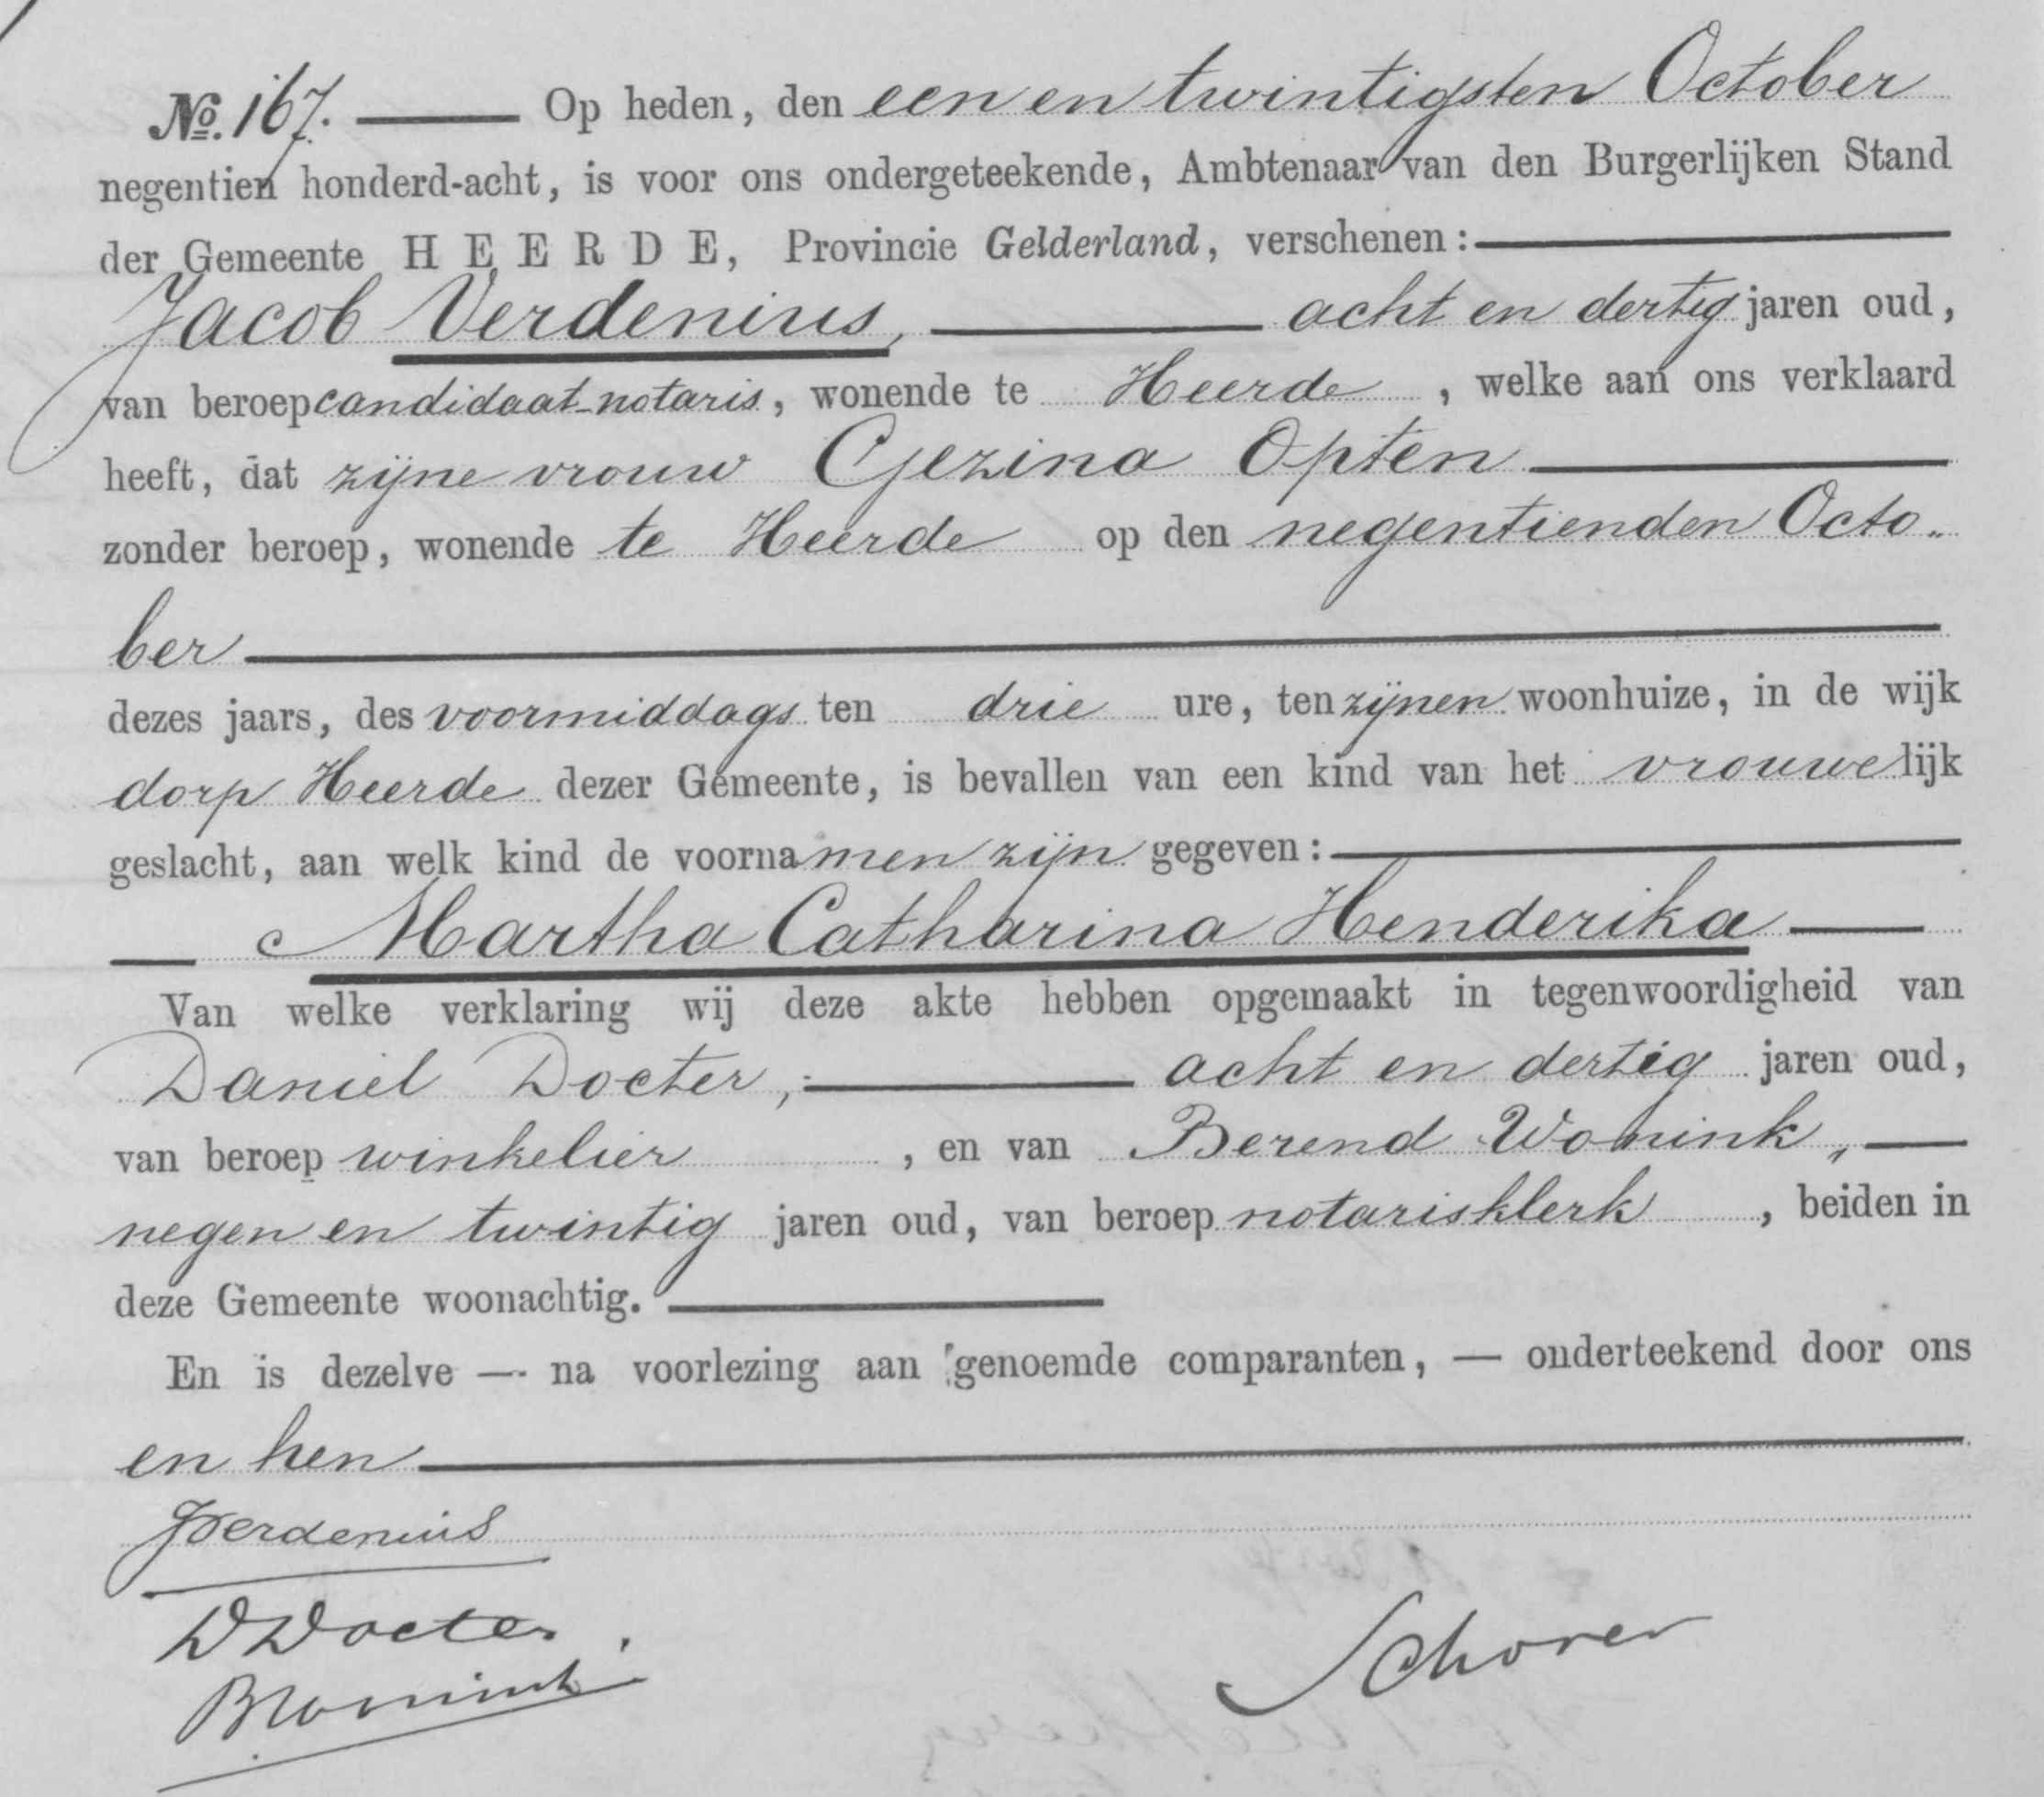 No. 167. Op heden, den een en twintigsten October
negentien honderd-acht, is voor ons ondergeteekende, Ambtenaar van den Burgerlijken Stand
der Gemeente HEERDE, Provincie Gelderland, verschenen:
Jacob Verdenius, acht en dertig jaren oud,
van beroep candidaat-notaris, wonende te Heerde, welke aan ons verklaard
heeft, dat zijne vrouw Gezina Opten
zonder beroep, wonende te Heerde op den negentienden Octo-
ber
dezes jaars, des voormiddags ten drie ure, ten zijnen woonhuize, in de wijk
dorp Heerde dezer Gemeente, is bevallen van een kind van het vrouwelijk
geslacht, aan welk kind de voornamen zijn gegeven:
Martha Catharina Henderika
Van welke verklaring wij deze akte hebben opgemaakt in tegenwoordigheid van
Daniel Docter, acht en dertig jaren oud,
van beroep winkelier, en van Berend Wonink,
negen en twintig jaren oud, van beroep notarisklerk, beiden in
deze Gemeente woonachtig.
En is dezelve — na voorlezing aan genoemde comparanten, — onderteekend door ons
en hen
JVerdenius
DDocter.
BWonink
Schorer